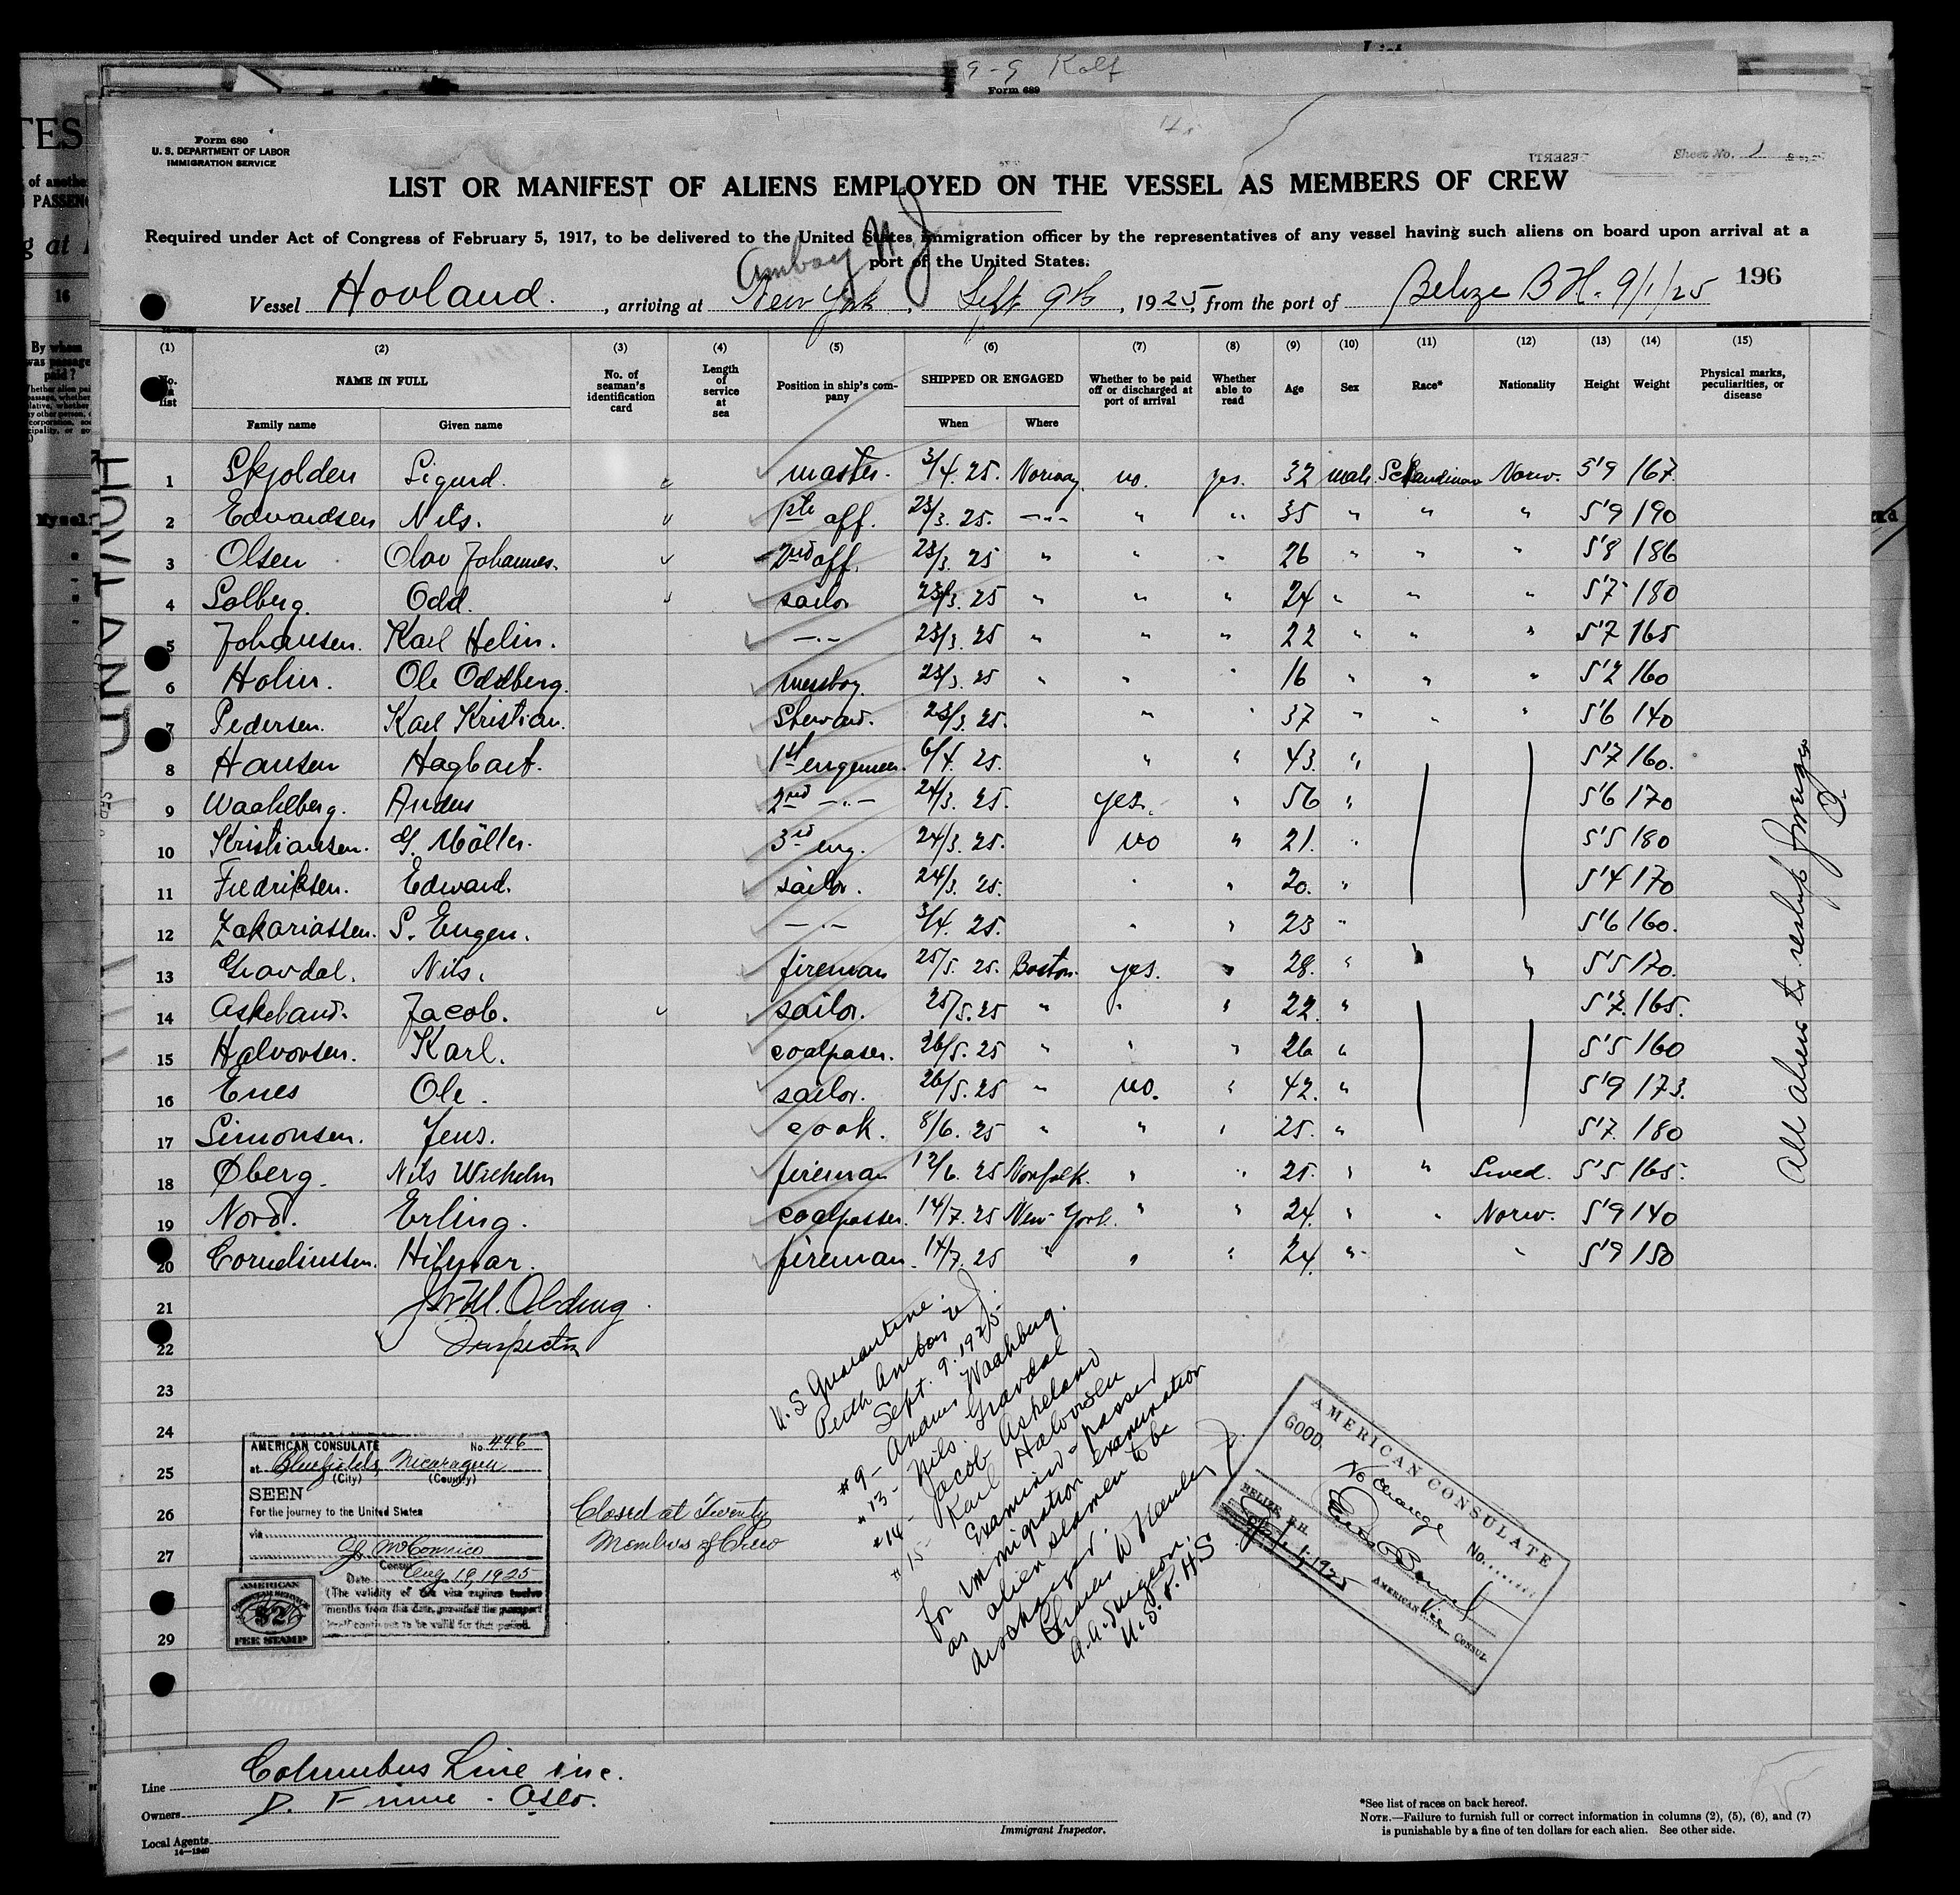 9-9 Rolf
Form 689
Form 680
U. S. DEPARTMENT OF LABOR
IMMIGRATION SERVICE
Sheet No. 1
LIST OR MANIFEST OF ALIENS EMPLOYED ON THE VESSEL AS MEMBERS OF CREW
Required under Act of Congress of February 5, 1917, to be delivered to the United States immigration officer by the representatives of any vessel having such aliens on board upon arrival at a
port of the United States.
Amboy N J
Vessel Hovland. , arriving at New York , Sept 9th , 1925, from the port of Belize B H. 9/1/25 196
(1) (2) (3) (4) (5) (6) (7) (8) (9) (10) (11) (12) (13) (14) (15)
No. in list NAME IN FULL No. of seaman's identification card Length of service at sea Position in ship's company SHIPPED OR ENGAGED Whether to be paid off or discharged at port of arrival Whether able to read Age Sex Race* Nationality Height Weight Physical marks, peculiarities, or disease
Family name Given name When Where
1 Skjolden Sigurd. master. 3/4. 25. Norway no. yes. 32 male Scandinav Norw. 5'9 167.
2 Edwardsen Nils. 1ste off. 23/3. 25. -"- " " 35 " " " 5'9 190
3 Olsen Olav Johannes. 2nd off. 23/3. 25 " " " 26 " " " 5'8 186
4 Solberg. Odd. sailor 23/3. 25 " " " 24 " " " 5'7 180
5 Johansen. Karl Helin. -"- 23/3. 25 " " " 22 " " " 5'7 165
6 Holm. Ole Oddberg. messboy. 23/3. 25 " " " 16 " " " 5'2 160
7 Pedersen. Karl Kristian. Steward. 23/3. 25. " " 37 " " " 5'6 140
8 Hansen Hagbart. 1st engeneer. 6/4. 25. " " 43. " 5'7 160.
9 Waahlberg. Anders 2nd -"- 24/3. 25. yes. " 56 " 5'6 170
10 Kristiansen. G. Möller. 3rd eng. 24/3. 25. no " 21. " 5'5 180
11 Fredriksen. Edward. sailor. 24/3. 25. " " 20. " 5'4 170
12 Zakariassen. S. Eugen. -"- 3/4. 25. " " 23 " 5'6 160.
13 Gravdal. Nils. fireman 25/5. 25. Boston. yes. " 28. " " " 5'5 170.
14 Askeland. Jacob. sailor. 25/5. 25 " " " 22. " 5'7. 165.
15 Halvorsen. Karl. coalpaser. 26/5. 25 " " " 26 " 5'5 160
16 Enes Ole. sailor. 26/5. 25 " no. " 42. " 5'9 173.
17 Simonsen. Jens. cook. 8/6. 25 " " " 25. " 5'7. 180
18 Øberg. Nils Wilhelm fireman 12/6. 25 Norfolk. " " 25. " " Swed. 5'5 165.
19 Nord. Erling. coalpasser. 14/7. 25 New York. " " 24. " " Norw. 5'9 140
20 Corneliussen. Hilmar. fireman. 14/7. 25 " " " 24. " " 5'9 150
21
22 Inspector
23
24
25
26
27
29
HOVLAND
All aliens to reship foreign
U. S Quarantine.
Perth Amboy N J.
Sept. 9. 1925.
#9 - Anders Waahlberg.
#13 - Nils. Gravdal
#14 - Jacob Askeland
#15 - Karl Halvorsen
Examined & passed
for immigration examination
as alien seamen to be
discharged.
Charles W
A. A. Surgeon.
U. S. P. H S
AMERICAN CONSULATE No. 446
at Bluefields, Nicaragua
(City) (Country)
SEEN
For the journey to the United States
via
Consul
Date Aug 19, 1925
(The validity of this visa expires twelve
months from this date, provided the passport
itself continues to be valid for that period.
AMERICAN
CONSULAR SERVICE
$2
FEE STAMP
Closed at Twenty
Members of Crew
AMERICAN CONSULATE
GOOD.
No change No.
BELIZE, B.H.
Sept. 1, 1925
AMERICAN Vice CONSUL.
Line Columbus Line inc.
Owners D. Finne - Oslo.
Local Agents
14-1240
Immigrant Inspector.
*See list of races on back hereof.
NOTE.—Failure to furnish full or correct information in columns (2), (5), (6), and (7)
is punishable by a fine of ten dollars for each alien. See other side.